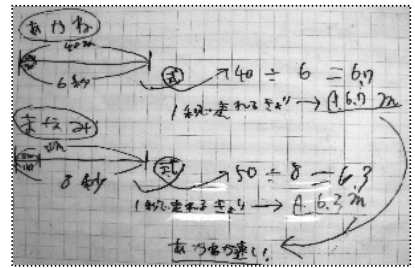 あかね
40m
6秒
式 40 ÷ 6 = 6.7
1秒で走れるきょり → A. 6.7 m
まさみ
8秒
式 50 ÷ 8 = 6.3
1秒で走れるきょり → A. 6.3 m
あかねが速い!